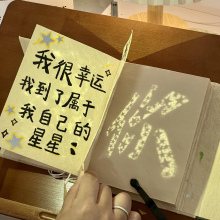 我很幸运
我找到了属于
我自己的
星星: